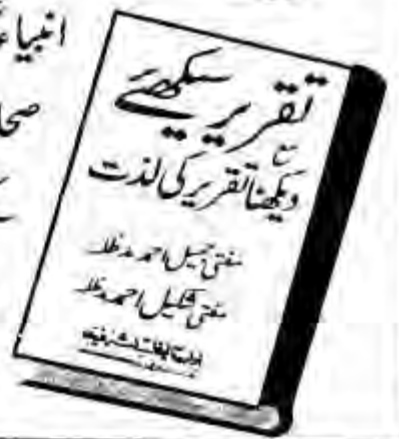 انبیاء
تقریر سیکھئے
مع
دیکھنا تقریر کی لذت
مفتی جمیل احمد مدظلہ
مفتی شکیل احمد مدظلہ